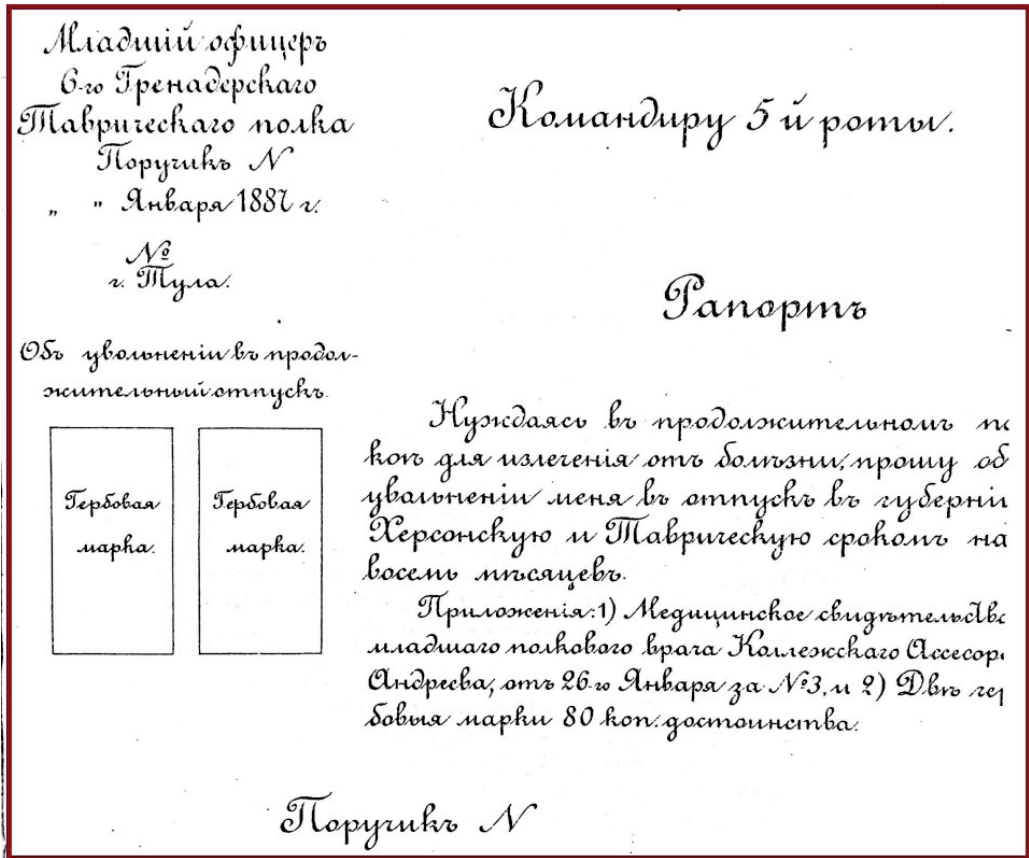 Младшій офицеръ
6-го Гренадерскаго
Таврическаго полка
Поручикъ N
„ " Января 1887 г.
№
г. Тула.
Командиру 5 й роты.
Рапортъ
Объ увольненіи въ продол-
жительный отпускъ.
Гербовая
марка.
Гербовая
марка.
Нуждаясь въ продолжительномъ по
коѣ для излеченія отъ болѣзни, прошу об
увольненіи меня въ отпускъ въ губерніи
Херсонскую и Таврическую срокомъ на
восемь мѣсяцевъ.
Приложенія: 1) Медицинское свидѣтельство
младшаго полкового врача Коллежскаго Ассесор
Андреева, отъ 26-го Января за №3, и 2) Двѣ гер
бовыя марки 80 коп. достоинства.
Поручикъ N